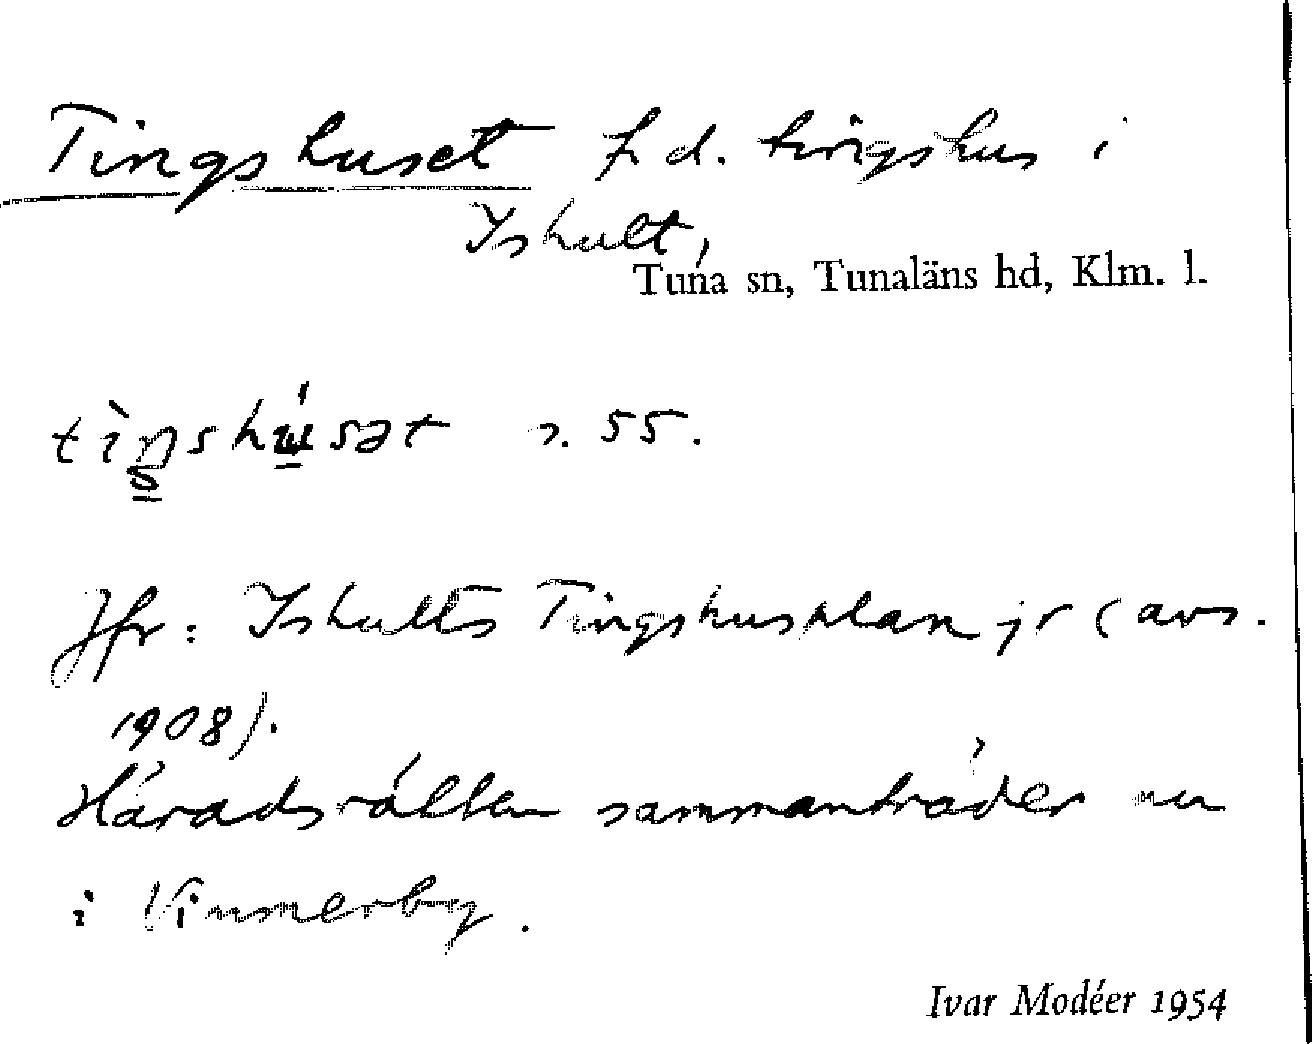 Tingshuset f. d. tingshus i
Ishult,
Tuna sn, Tunaläns hd, Klm. l.
tìŋshúsət s. 55.
Jfr: Ishults Tingshusplan jr (avs.
1908).
Häradsrätten sammanträder nu
i Vimmerby.
Ivar Modéer 1954